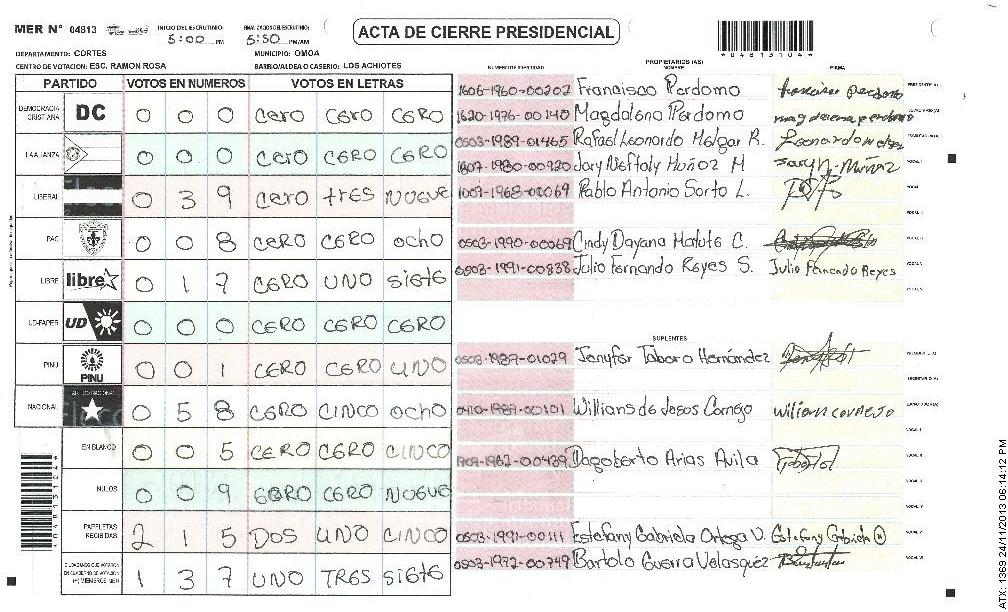 MER N° 04813 INICIO DEL ESCRUTINIO: 5:00 PM FINALIZACION DEL ESCRUTINIO: 5:50 PM/AM ACTA DE CIERRE PRESIDENCIAL
*04813104*
DEPARTAMENTO: CORTES MUNICIPIO: OMOA
CENTRO DE VOTACION: ESC. RAMON ROSA BARRIO/ALDEA O CASERIO: LOS ACHIOTES
PARTIDO VOTOS EN NUMEROS VOTOS EN LETRAS
DEMOCRACIA CRISTIANA DC 0 0 0 cero CERO CERO
LA ALIANZA 0 0 0 cero CERO CERO
LIBERAL 0 3 9 cero tres NUEVE
PAC 0 0 8 CERO CERO ocho
LIBRE libre 0 1 7 CERO UNO siete
UD-FAPER UD 0 0 0 CERO CERO CERO
PINU PINU 0 0 1 CERO CERO UNO
NACIONAL 0 5 8 CERO CINCO ocho
EN BLANCO 0 0 5 CERO CERO CINCO
NULOS 0 0 9 CERO CERO NUEVE
PAPELETAS RECIBIDAS 2 1 5 DOS UNO CINCO
CIUDADANOS QUE VOTARON EN CUADERNO DE VOTACION (+) MIEMBROS MER 1 3 7 UNO TRES siete
PROPIETARIOS (AS)
NUMERO DE IDENTIDAD NOMBRE FIRMA
1606-1960-00202 Francisco Perdomo francisco perdomo
1620-1976-00140 Magdalena Perdomo magdalena perdomo
0503-1989-01465 Rafael Leonardo Melgar R.
1807-1980-00920 Jory Neftaly Muñoz M
1007-1968-00069 Pablo Antonio Sorto L.
0503-1990-00069 Cindy Dayana Matute C.
0503-1991-00838 Julio Fernando Reyes S. Julio Fernando Reyes
SUPLENTES
0503-1989-01029 Jenyfer Tabora Hernández
0410-1989-00101 Willians de Jesus Cornejo
1909-1962-00439 Dagoberto Arias Avila
0503-1991-00111 Estefany Gabriela Ortega V. Estefany Gabriela
0503-1972-00749 Bartolo Guerra Velasquez
ATX: 1369 24/11/2013 06:14:12 PM